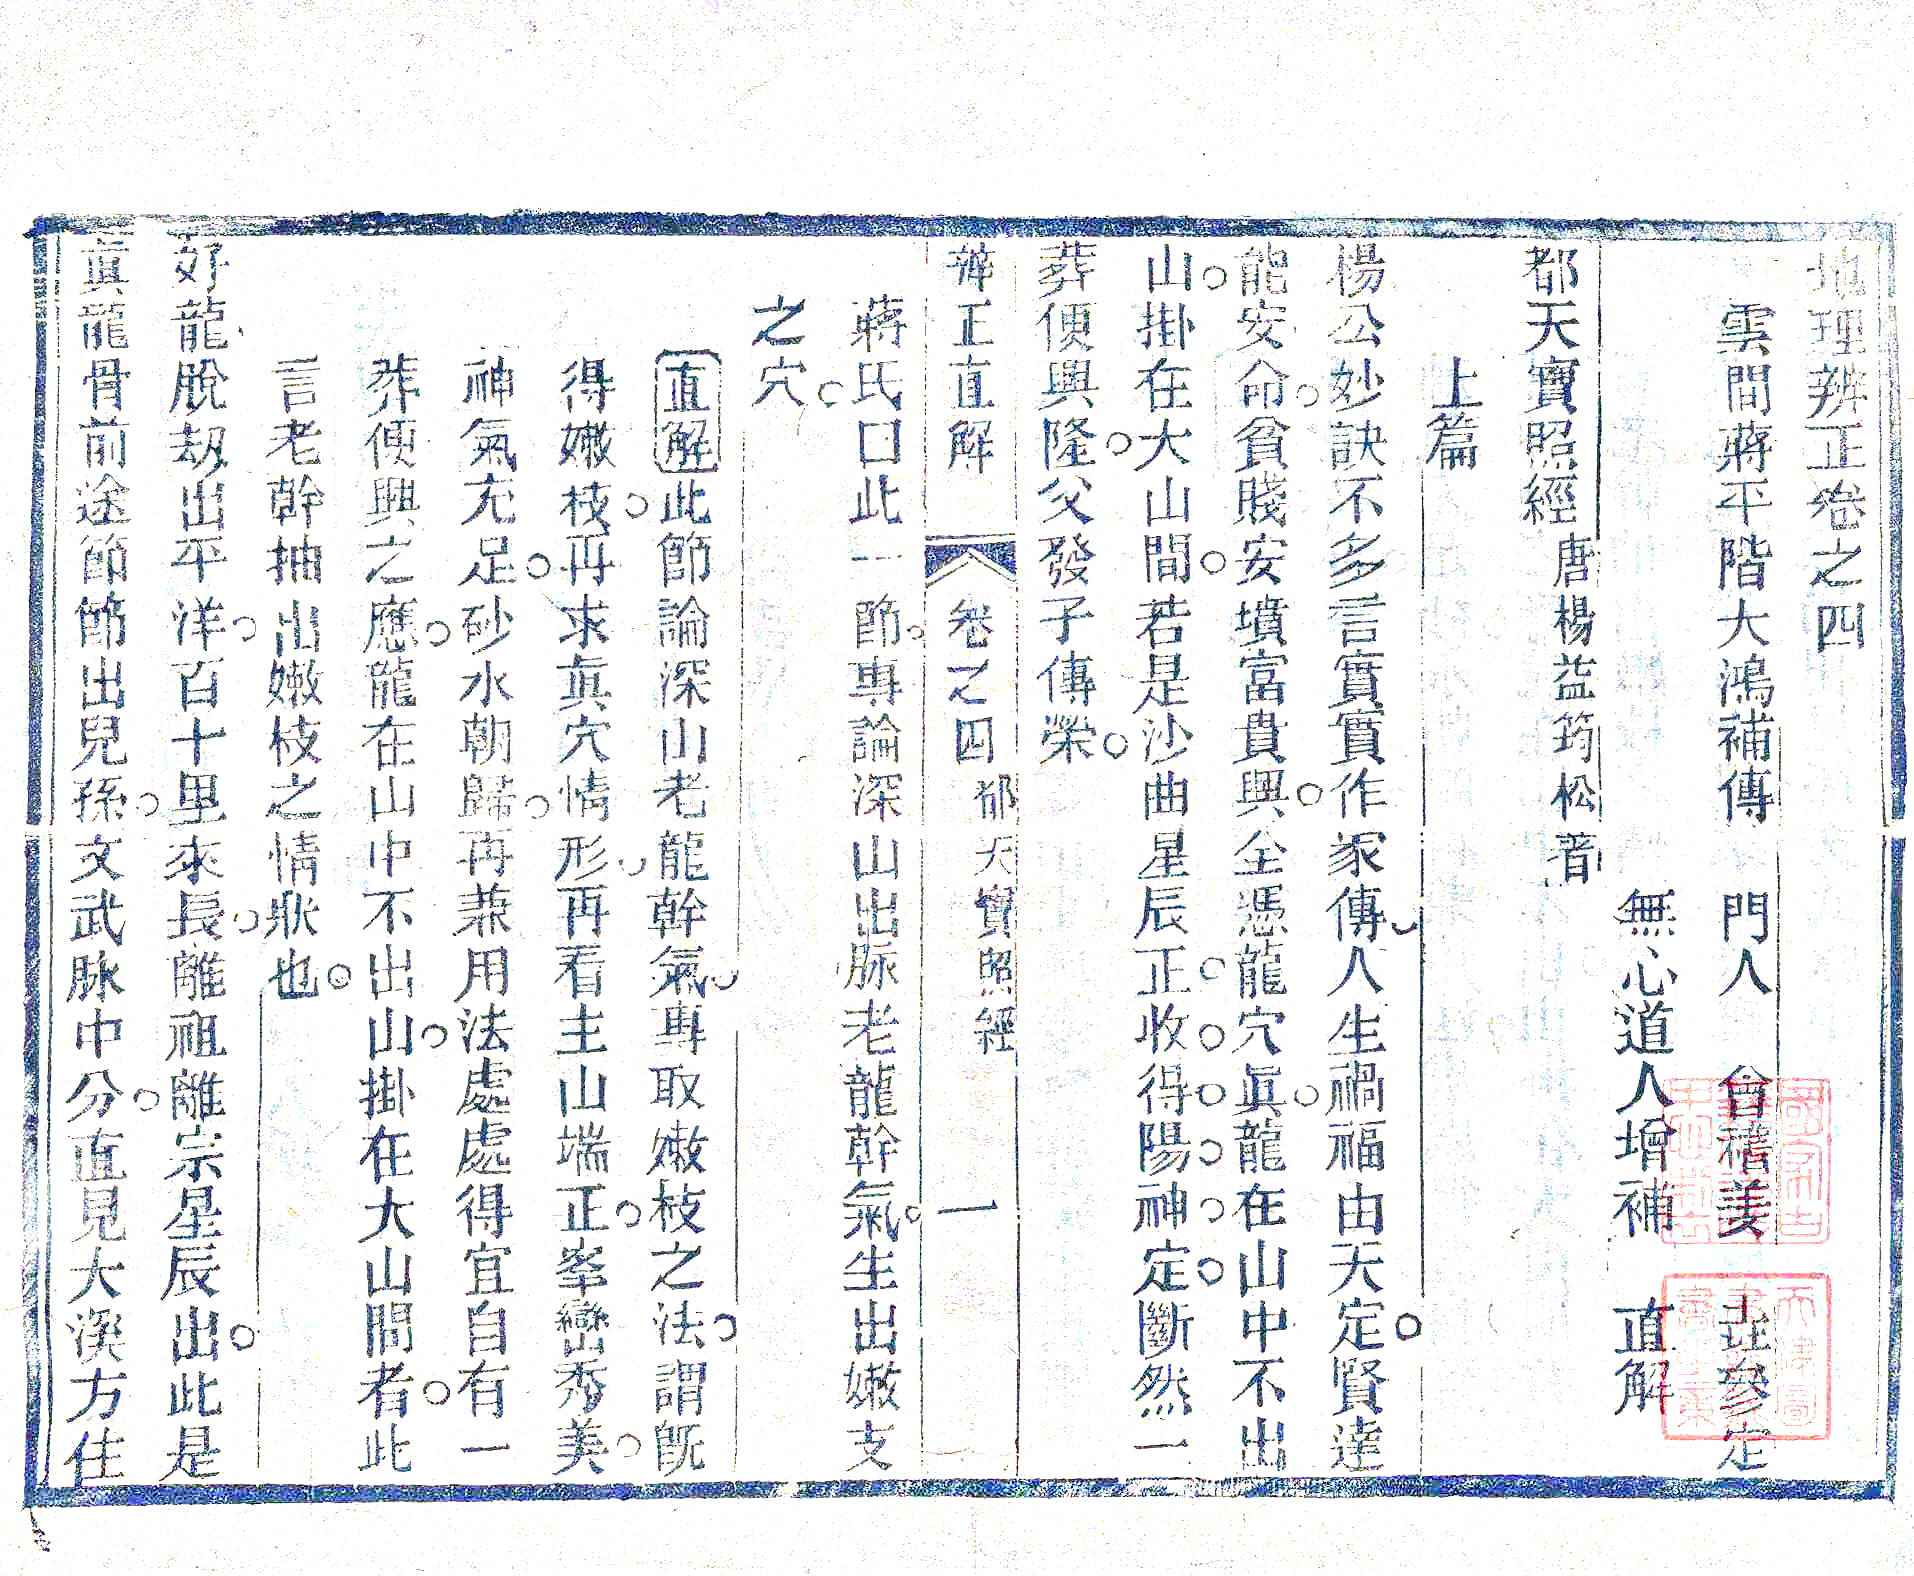 地理辨正卷之四
雲間蔣平階大鴻補傳　門人　會稽姜垚參定
無心道人增補　直解
都天寶照經　唐楊益筠松著
上篇
楊公妙訣不多言實實作家傳人生禍福由天定賢達
能安命貧賤安墳富貴興全憑龍穴眞龍在山中不出
山掛在大山間若是沙曲星辰正收得陽神定斷然一
葬便興隆父發子傳榮
辨正直解　卷之四　都天寶照經　一
蔣氏曰此一節專論深山出脉老龍幹氣生出嫩支
之穴
直解此節論深山老龍幹氣專取嫩枝之法謂旣
得嫩枝再求眞穴情形再看主山端正峯巒秀美
神氣充足砂水朝歸再兼用法處處得宜自有一
葬便興之應龍在山中不出山掛在大山間者此
言老幹抽出嫩枝之情狀也
好龍脫刼出平洋百十里來長離祖離宗星辰出此是
眞龍骨前途節節出兒孫文武脉中分直見大溪方住